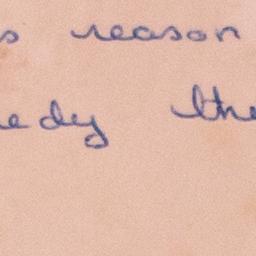 s reason
edy the